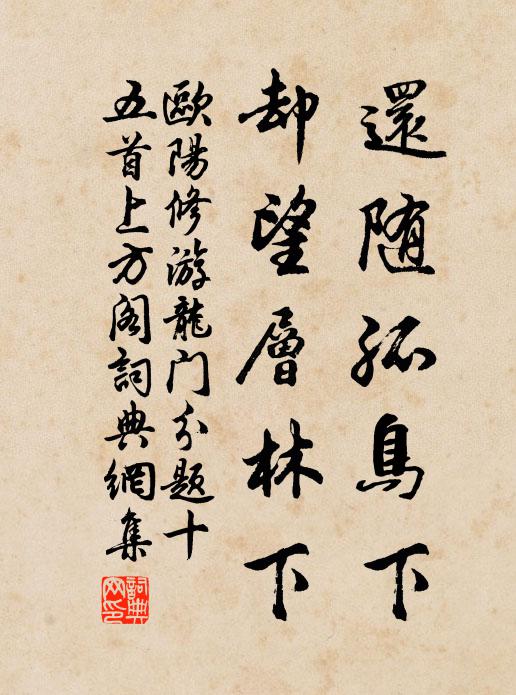 還随孤鳥下
却望層林下
歐陽修游龍门分題十
五首上方阁詞典網集
詞典网印